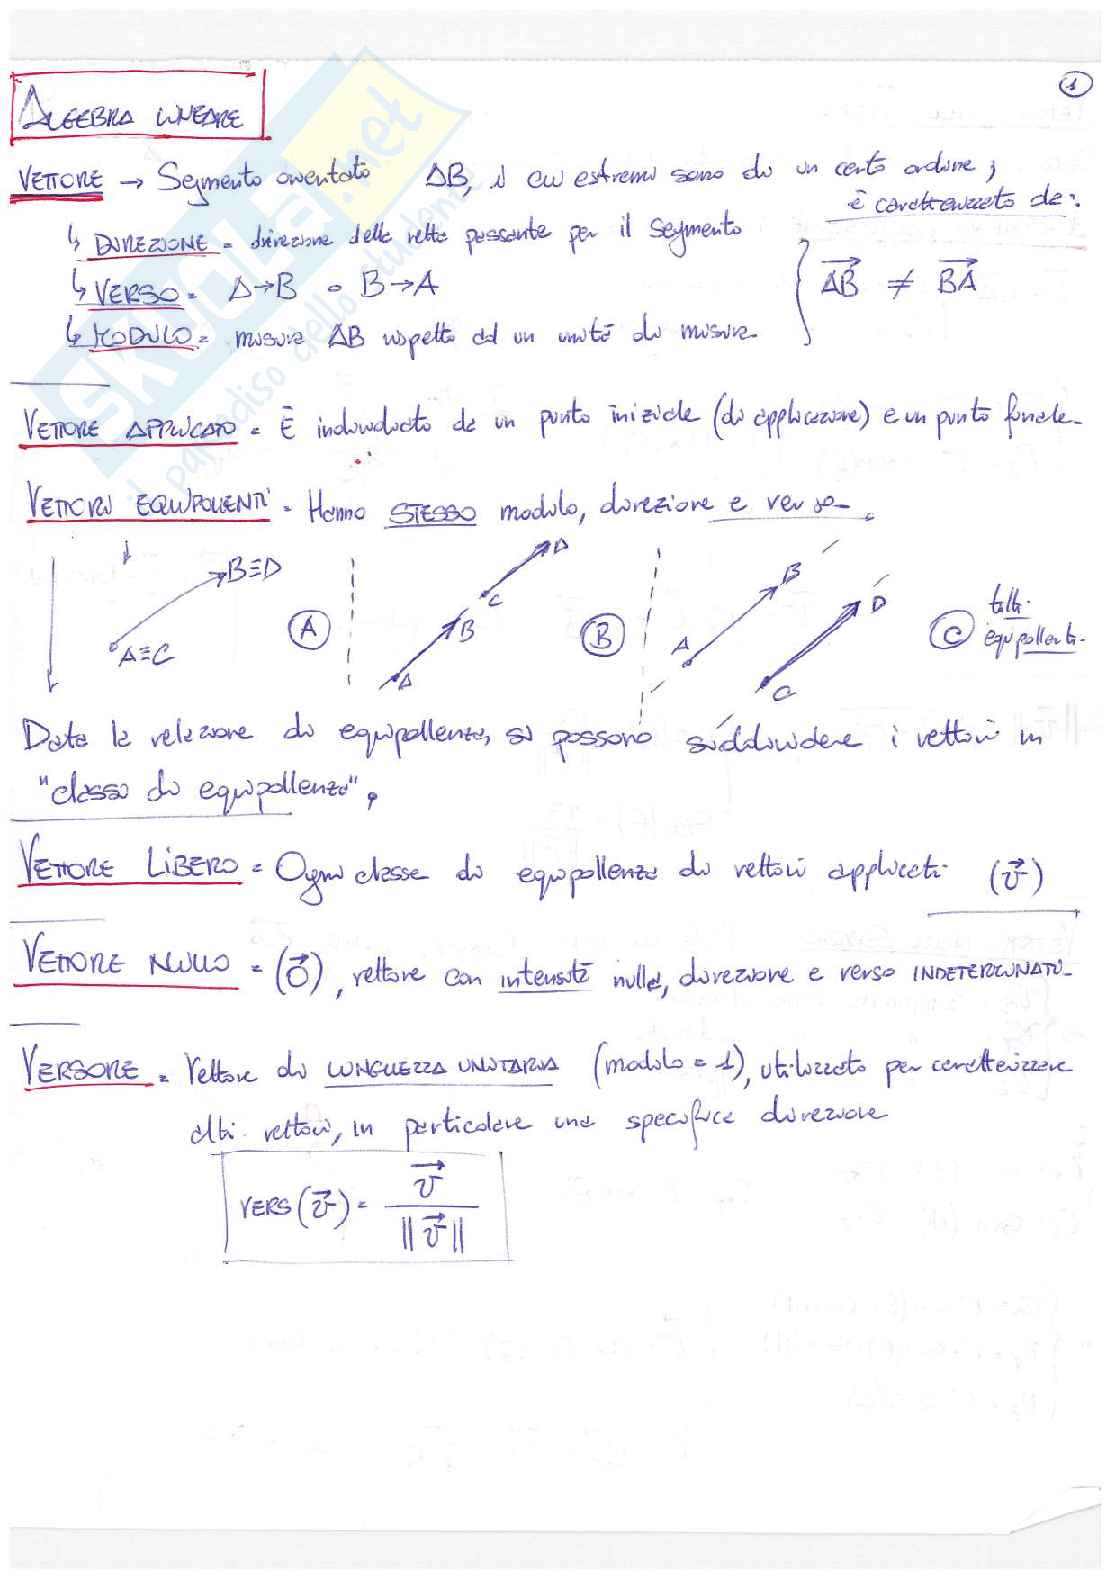 1
ALGEBRA LINEARE
VETTORE → Segmento orientato AB, i cui estremi sono di un certo ordine;
è caratterizzato da:
↳ DIREZIONE = direzione della retta passante per il segmento
↳ VERSO = A→B o B→A
↳ MODULO = misura AB rispetto ad un unità di misura
} AB ≠ BA
VETTORE APPLICATO = È individuato da un punto iniziale (di applicazione) e un punto finale.
VETTORI EQUIPOLLENTI = Hanno STESSO modulo, direzione e verso.
B≡D
A≡C
A
A
B
C
D
B
A
B
C
D
C
tutti equipollenti.
Data la relazione di equipollenza, si possono suddividere i vettori in
"classi di equipollenza".
VETTORE LIBERO = Ogni classe di equipollenza di vettori applicati (v)
VETTORE NULLO = (O), vettore con intensità nulla, direzione e verso INDETERMINATI.
VERSORE = Vettore di LUNGHEZZA UNITARIA (modulo = 1), utilizzato per caratterizzare
altri vettori, in particolare una specifica direzione
VERS(v) = v / ||v||
SKUOLA.net
il paradiso dello studente